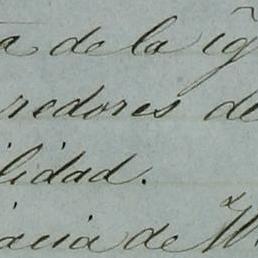 ta de la ig
redores de
ilidad.
acia de